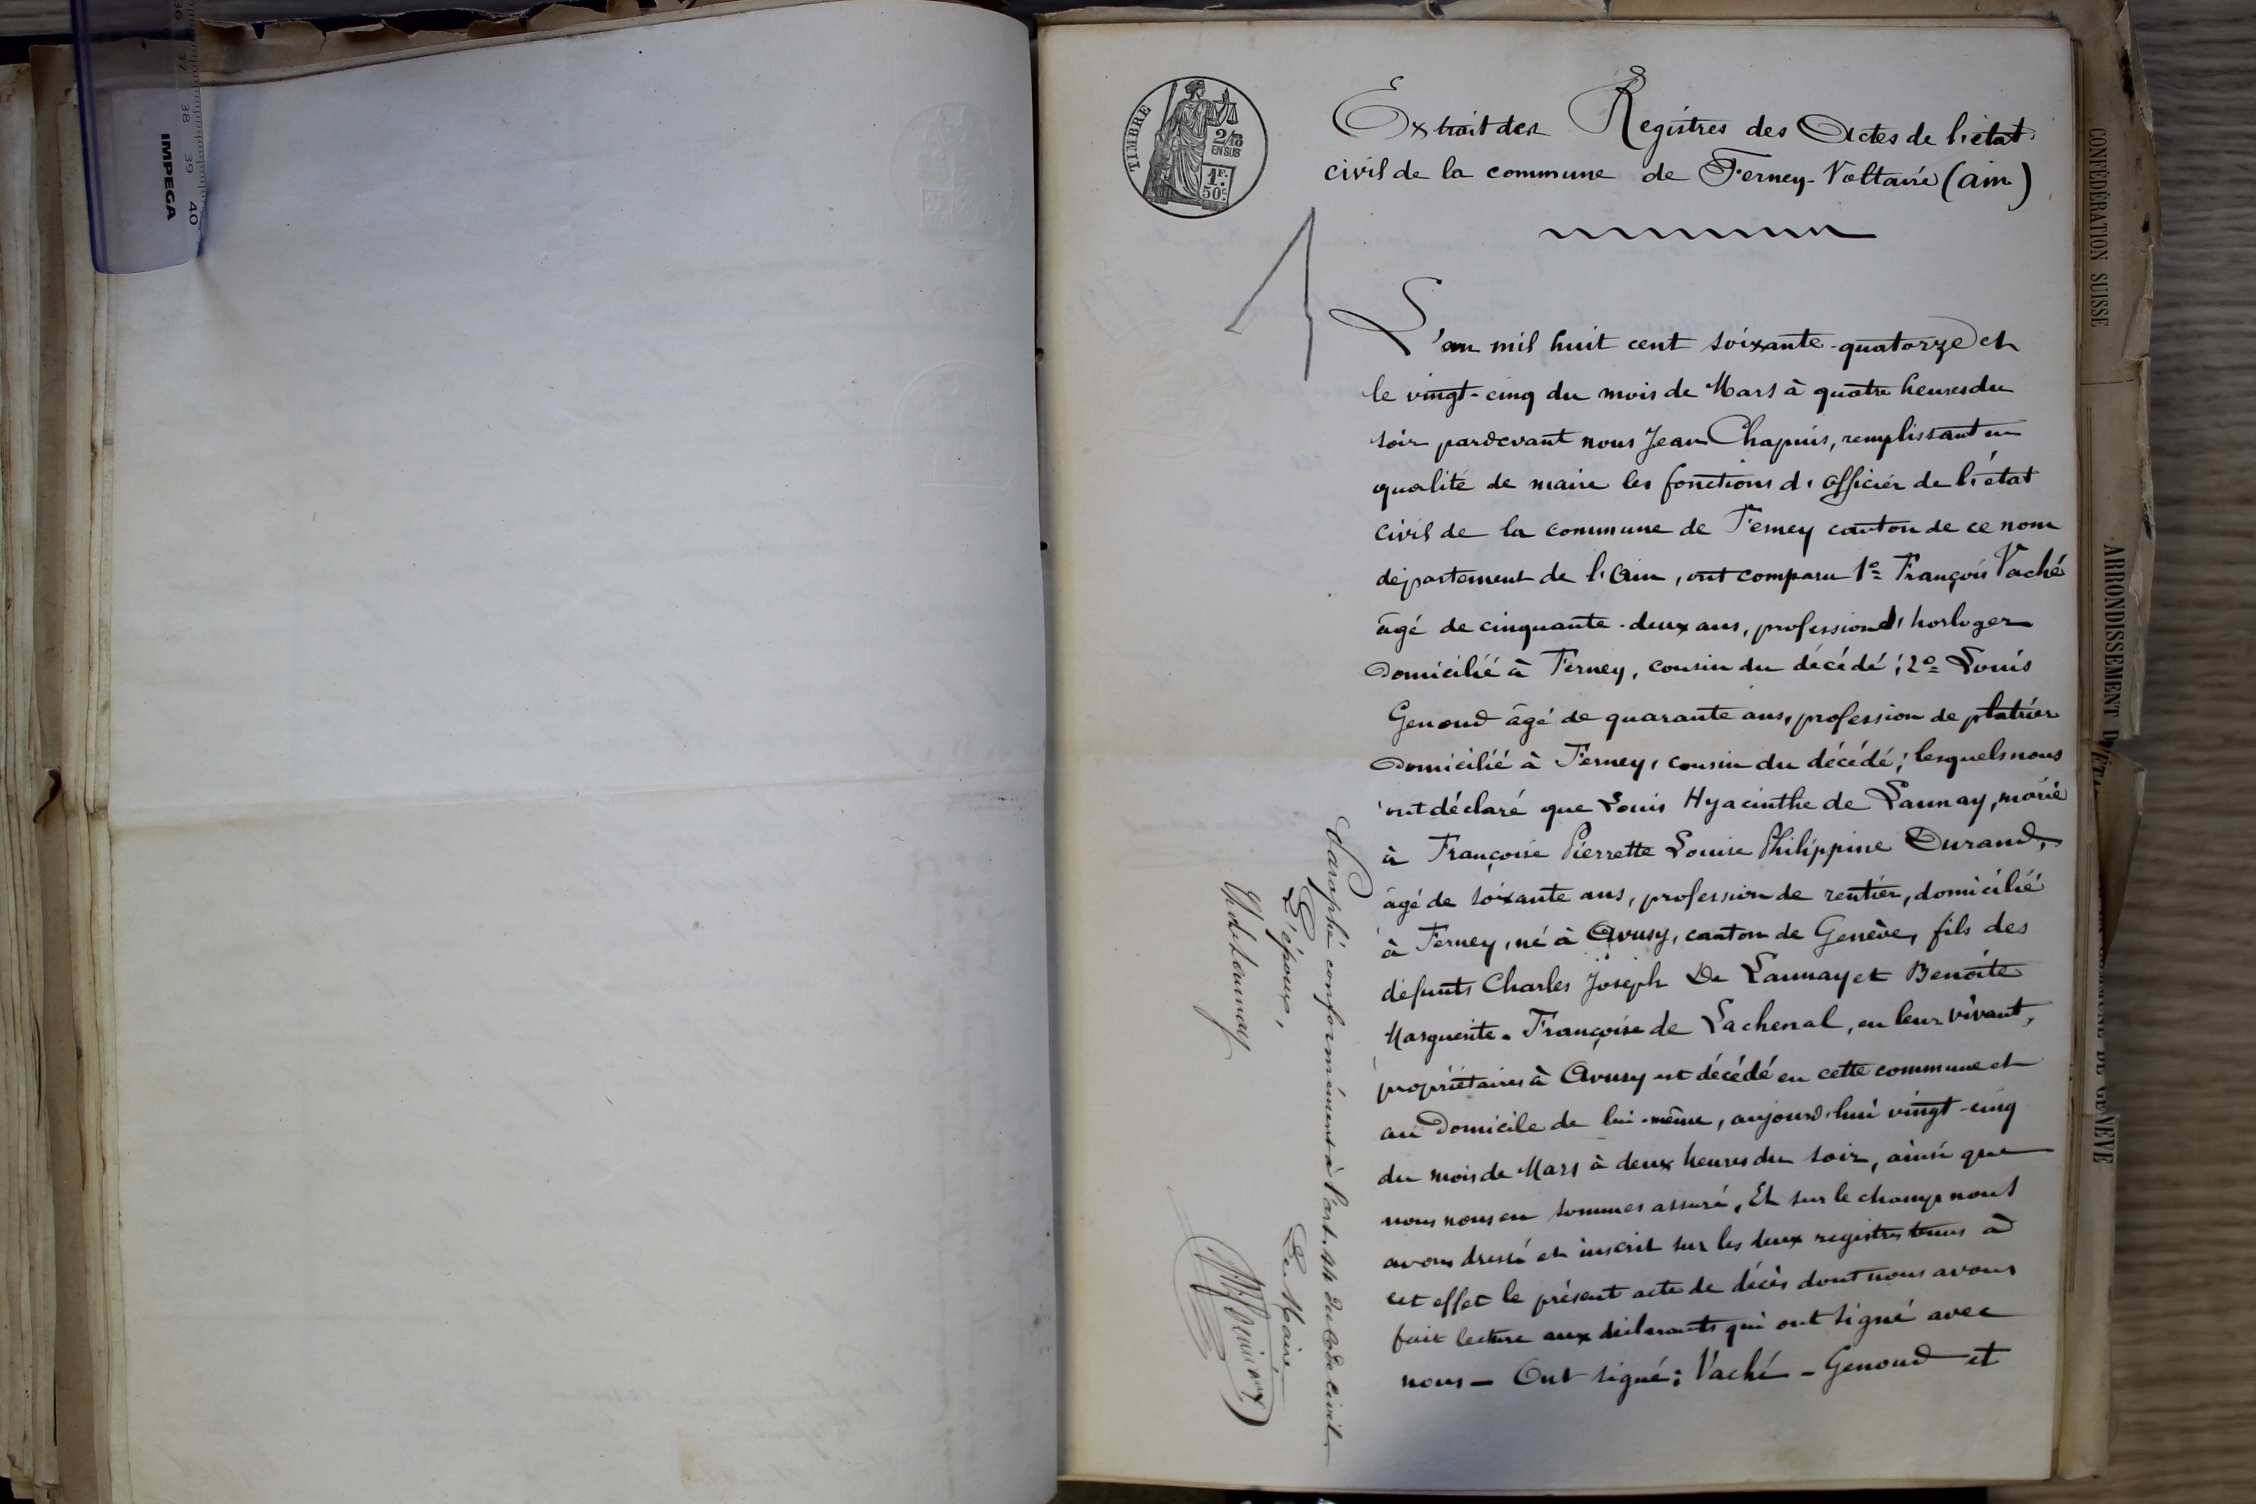 36 37 38 39 40
IMPEGA
TIMBRE
2/10
EN SUS
1F.
50c.
Extrait des Registres des Actes de l'état
civil de la commune de Ferney-Voltaire (Ain)
1
L'an mil huit cent soixante-quatorze et
le vingt-cinq du mois de Mars à quatre heures du
soir pardevant nous Jean Chapuis, remplissant en
qualité de maire les fonctions d'officier de l'état
civil de la commune de Ferney canton de ce nom
département de l'Ain, ont comparu 1º François Vaché
âgé de cinquante-deux ans, profession d'horloger
domicilié à Ferney, cousin du décédé; 2º Louis
Genoud âgé de quarante ans, profession de platrier
domicilié à Ferney, cousin du décédé; lesquels nous
ont déclaré que Louis Hyacinthe de Launay, marié
à Françoise Pierrette Louise Philippine Durand,
âgé de soixante ans, profession de rentier, domicilié
à Ferney, né à Avusy, canton de Genève, fils des
défunts Charles Joseph De Launay et Benoîte
Marguerite-Françoise de Lachenal, en leur vivant,
propriétaires à Avusy est décédé en cette commune et
au domicile de lui-même, aujourd'hui vingt-cinq
du mois de Mars à deux heures du soir, ainsi que
nous nous en sommes assuré, Et sur le champ nous
avons dressé et inscrit sur les deux registres tenus à
cet effet le présent acte de décès dont nous avons
fait lecture aux déclarants qui ont signé avec
nous — Ont signé: Vaché - Genoud et
Paraphé conformément à l'art. 44 du Code civil
L'époux, Le Maire,
de Launay
CONFÉDÉRATION SUISSE
ARRONDISSEMENT D'ÉTAT
DE GENÈVE